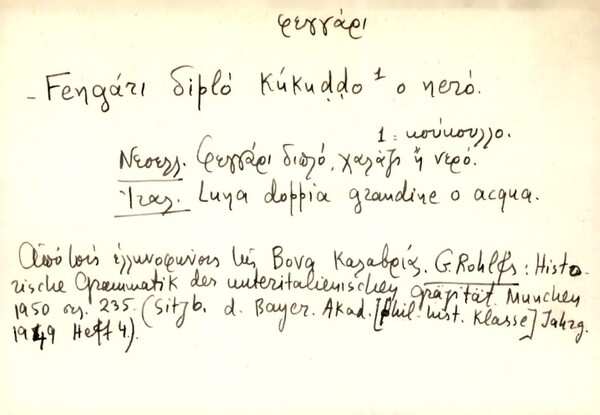 φεγγάρι
- Fengári dipló kúkuḍḍo¹ o neró.
1 = κούκουλλο.
Νεοελλ. Φεγγάρι διπλό, χαλάζι ἤ νερό.
Ἰταλ. Luna doppia grandine o acqua.
Ἀπό τούς ἑλληνοφώνους τῆς Βονα Καλαβρίας. G. Rohlfs: Histo-
rische Grammatik der unteritalienischen Gräzität. München
1950 σελ. 235. (Sitzb. d. Bayer. Akad. [phil. hist. Klasse] Jahrg.
1949 Heft 4).